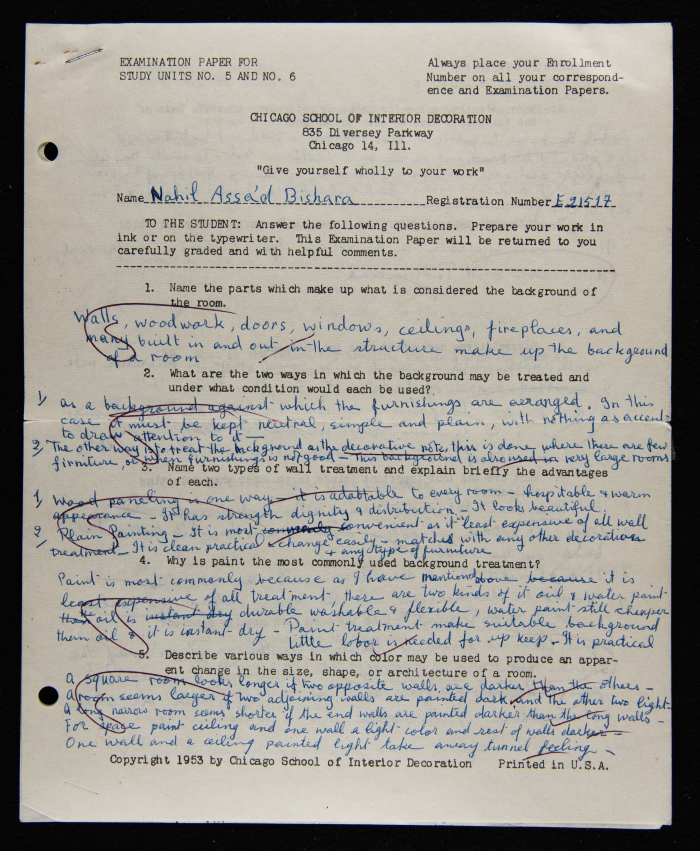 EXAMINATION PAPER FOR
STUDY UNITS NO. 5 AND NO. 6
Always place your Enrollment
Number on all your correspond-
ence and Examination Papers.
CHICAGO SCHOOL OF INTERIOR DECORATION
835 Diversey Parkway
Chicago 14, Ill.
"Give yourself wholly to your work"
Name Nahil Assa'd Bishara Registration Number E21517
TO THE STUDENT: Answer the following questions. Prepare your work in
ink or on the typewriter. This Examination Paper will be returned to you
carefully graded and with helpful comments.
1. Name the parts which make up what is considered the background of
the room.
Walls, woodwork, doors, windows, ceilings, fireplaces, and
many built in and out in the structure make up the background
of a room
2. What are the two ways in which the background may be treated and
under what condition would each be used?
1) as a background against which the furnishings are arranged. In this
case it must be kept neutral, simple and plain, with nothing as accent
to draw attention to it —
2) The other way is to treat the background as the decorative note, this is done where there are few
firniture, or when furnishings is not good — This background is also used in very large rooms
3. Name two types of wall treatment and explain briefly the advantages
of each.
1) Wood paneling is one way — it is adattable to every room — hospitable & warm
appearance — It has strength dignity & distribution — It looks beautiful.
2) Plain Painting — It is most commonly convenient as it least expensive of all wall
treatment — It is clean practical & change easily — matched with any other decorations
& any type of furniture
4. Why is paint the most commonly used background treatment?
Paint is most commonly because as I have mentioned above because it is
least expensive of all treatment, there are two kinds of it oil & water paint
the oil is instant dry durable washable & flexible, water paint still cheaper
them oil & it is instant dry — Paint treatment make suitable background
little labor is needed for up keep — It is practical
5. Describe various ways in which color may be used to produce an appar-
ent change in the size, shape, or architecture of a room.
A square room looks longer if two opposite walls are darker than the others —
A room seems larger if two adjoining walls are painted dark and the other two light
A long narrow room seems shorter if the end walls are painted darker than the long walls —
For space paint ceiling and one wall a light color and rest of walls darker —
One wall and a ceiling painted light take away tunnel feeling —
Copyright 1953 by Chicago School of Interior Decoration Printed in U.S.A.